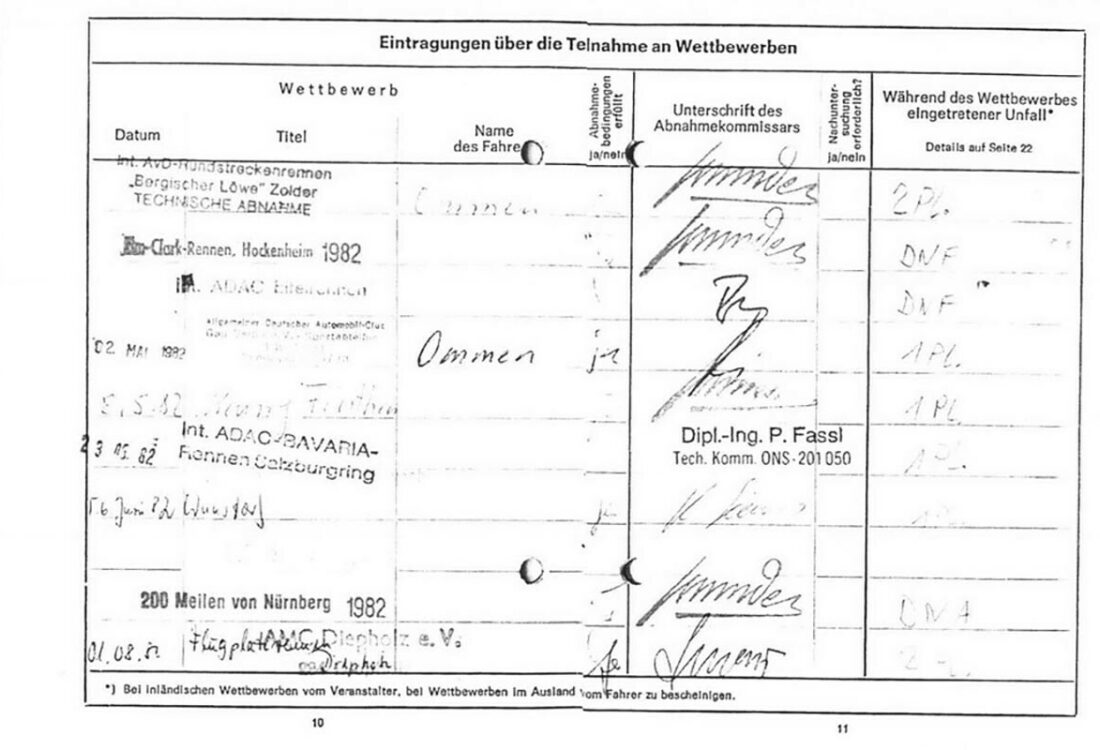 Eintragungen über die Teilnahme an Wettbewerben
Wettbewerb
Datum
Titel
Name
des Fahre
Abnahme-
bedingungen
erfüllt
ja/nein
Unterschrift des
Abnahmekommissars
Nachunter-
suchung
erforderlich?
ja/nein
Während des Wettbewerbes
eingetretener Unfall*
Details auf Seite 22
Int. AvD-Rundstreckenrennen
„Bergischer Löwe" Zolder
TECHNISCHE ABNAHME
Ommen
2 PL.
-Clark-Rennen, Hockenheim 1982
DNF
ADAC Eifelrennen
DNF
Allgemeiner Deutscher Automobil-Club
02 MAI 1982
Ommen
ja
1 PL.
1 PL
Int. ADAC-BAVARIA-
Rennen Salzburgring
Dipl.-Ing. P. Fassl
Tech. Komm. ONS-201 050
1 PL.
Juni 82 Wunstorf
ja
200 Meilen von Nürnberg 1982
DNA
AMC Diepholz e.V.
01.08.82 Flugplatzrennen
Diepholz
ja
*) Bei inländischen Wettbewerben vom Veranstalter, bei Wettbewerben im Ausland vom Fahrer zu bescheinigen.
10
11